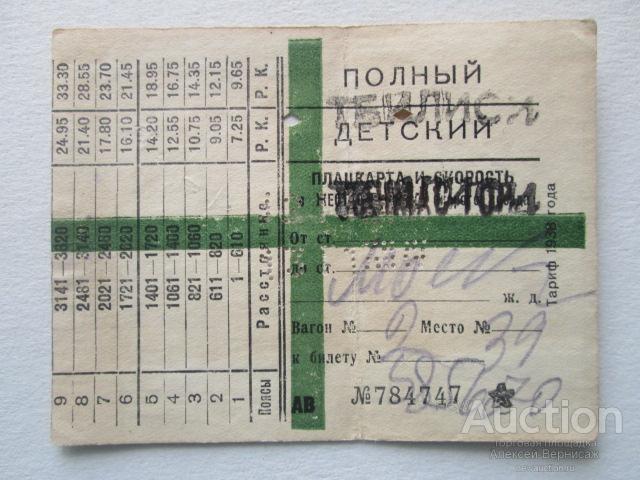 ПОЛНЫЙ
ТБИЛИСИ
ДЕТСКИЙ
ПЛАЦКАРТА И СКОРОСТЬ
От ст.
до ст.
ж. д.
Вагон № 9 Место № 39
к билету №
№ 784747
АВ
Тариф 1938 года
Поясы Расстояние Р. К. Р. К.
1 1—610 7.25 9.65
2 611 820 9.05 12.15
3 821 1060 10.75 14.35
4 1061—1400 12.55 16.75
5 1401—1720 14.20 18.95
6 1721—2020 16.10 21.45
7 2021—2460 17.80 23.70
8 2461—3140 21.40 28.55
9 3141—3820 24.95 33.30
Auction
торговая площадка
Алексей Вернисаж
newauction.ru